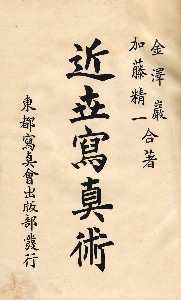 金澤巖
加藤精一 合著
近世寫真術
東都寫真會出版部發行